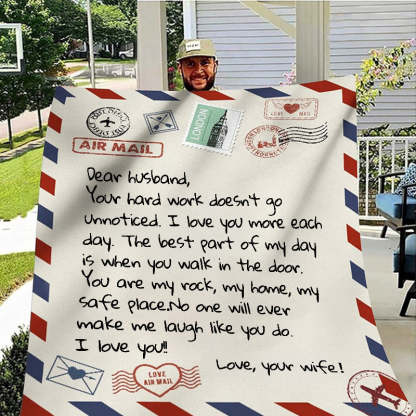 LONDON
AIR MAIL
Dear husband,
Your hard work doesn't go
unnoticed. I love you more each
day. The best part of my day
is when you walk in the door.
You are my rock, my home, my
safe place.No one will ever
make me laugh like you do.
I love you!!
Love, your wife!
LOVE
AIR MAIL